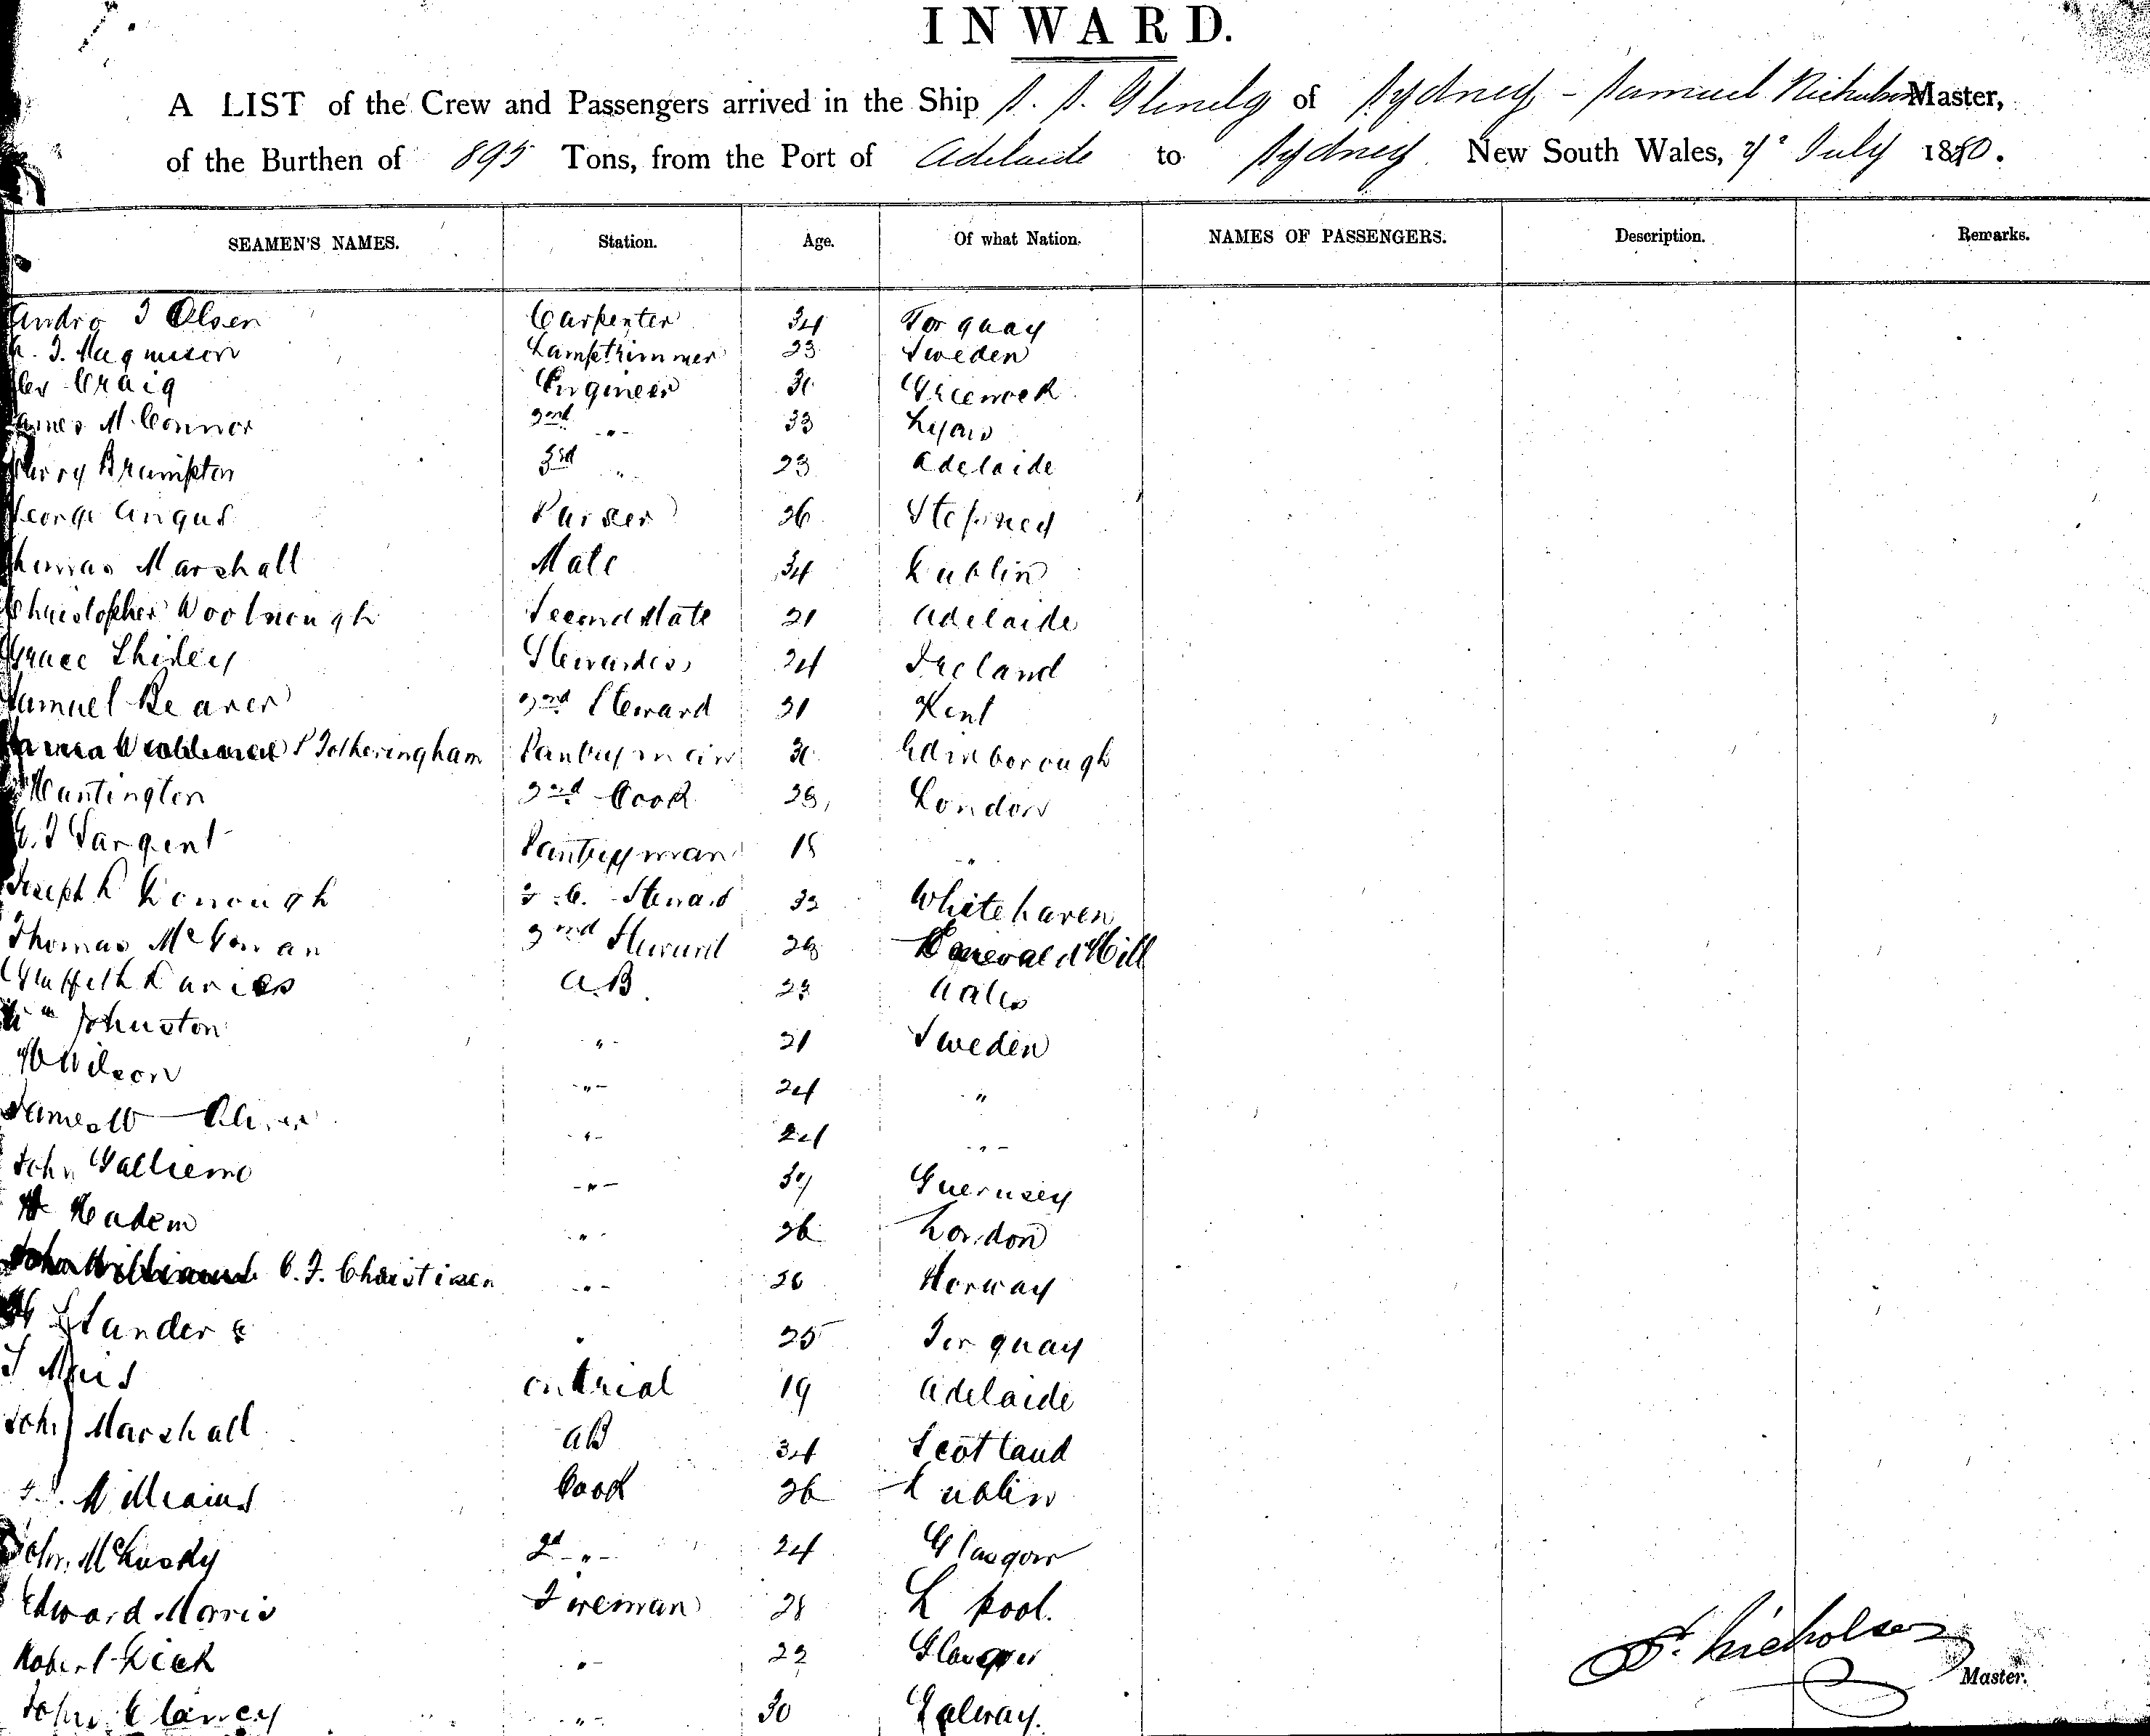 INWARD.
A LIST of the Crew and Passengers arrived in the Ship S. S. Glenelg of Sydney - Samuel Nicholson Master,
of the Burthen of 895 Tons, from the Port of Adelaide to Sydney New South Wales, July 1880.
SEAMEN'S NAMES. Station. Age. Of what Nation. NAMES OF PASSENGERS. Description. Remarks.
Andro J Olsen Carpenter 34 Torquay
J. Magnuson Lamptrimmer 23 Sweden
Craig Engineer Greenock
James McConnor 2nd -"- 33
Harry Brumpton 3rd " 23 Adelaide
George Angus Purser 26 Stepney
Thomas Marshall Mate 34 Dublin
Christopher Woolnough Second Mate 21 Adelaide
Grace Shirley Stewardess 24 Ireland
Samuel Bearer 2nd Steward 21 Kent
Fotheringham Pantryman Edinborough
Huntington 2nd Cook London
J Sargent Pantryman 18 -"-
Joseph Donough Steward Whitehaven
Thomas McGowan 2nd Steward Emerald Hill
Griffith Davies A.B. 23 Wales
Wm Johnston -"- 21 Sweden
Wilson -"- 24 "
James W Oliver -"- 24 -"-
John Gallienne -"- Guernsey
H Headem -"- 26 London
C. J. Christisen -"- 26 Norway
H Standers " 25 Torquay
J on trial 19 Adelaide
John Marshall AB 34 Scotland
Williams Cook 26 Dublin
John McLusky 2d -"- 24 Glasgow
Edward Morris Fireman 28 L pool.
Robert Dick "- 22 Glasgow
John Clancy -"- 30 Galway.
S. Nicholson
Master.